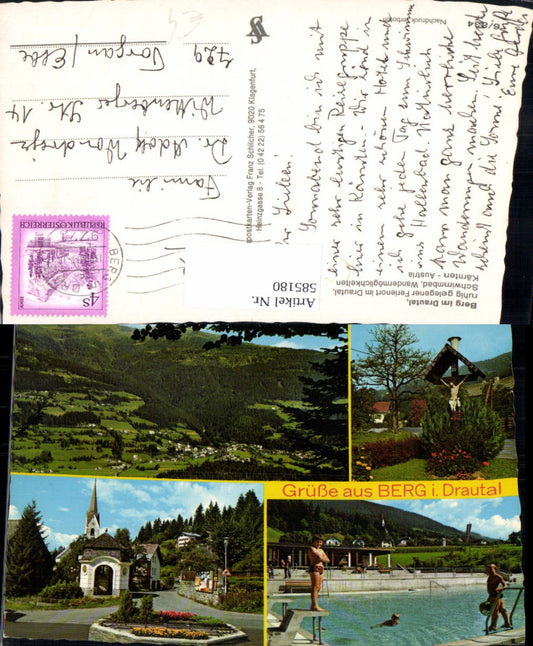 Ihr Lieben!
Sonnabend bin ich mit
einer sehr lustigen Reisegruppe
hier in Kärnten. Wir sind in
einem sehr schönen Hotel und
ich gehe jeden Tag zum Schwimmen
ins Hallenbad. Natürlich
kann man ganz wunderbare
Wanderungen machen. Seit heute
scheint auch die Sonne! Viele Grüße
Eure
Familie
Dr. Adolf
Wittenberger Str. 14
729 Torgau/Elbe
Berg im Drautal,
ruhig gelegener Ferienort im Drautal,
Schwimmbad, Wandermöglichkeiten
Kärnten - Austria
Postkarten-Verlag Franz Schilcher, 9020 Klagenfurt,
Heinzgasse 8 - Tel. (0 42 22) 56 4 75
Nachdruck verboten
REPUBLIK ÖSTERREICH
4S
BERG
Artikel Nr.
585180
Grüße aus BERG i. Drautal